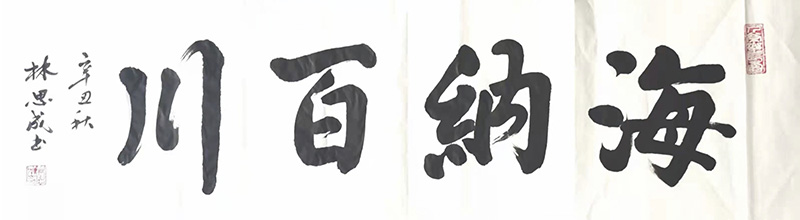 海納百川
辛丑秋
林思成书